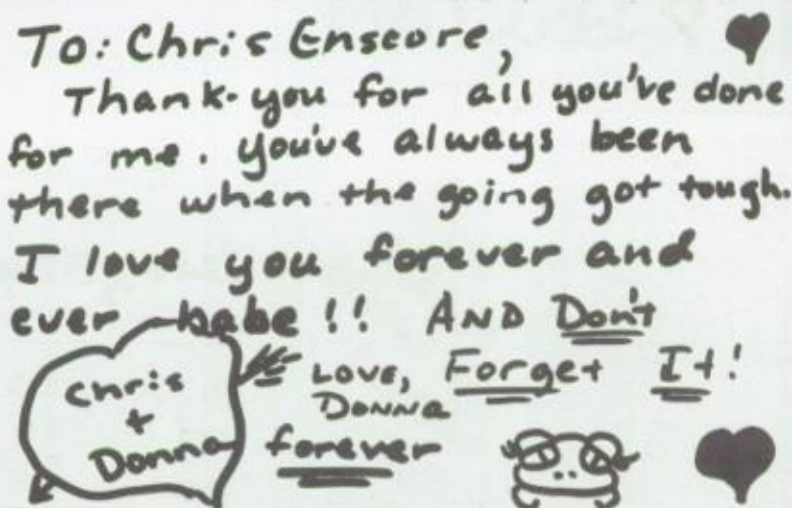 To: Chris Enscore,
Thank-you for all you've done
for me. you've always been
there when the going got tough.
I love you forever and
ever babe!! AND Don't
Forget It!
LOVE,
DONNA
Chris
+
Donna
forever